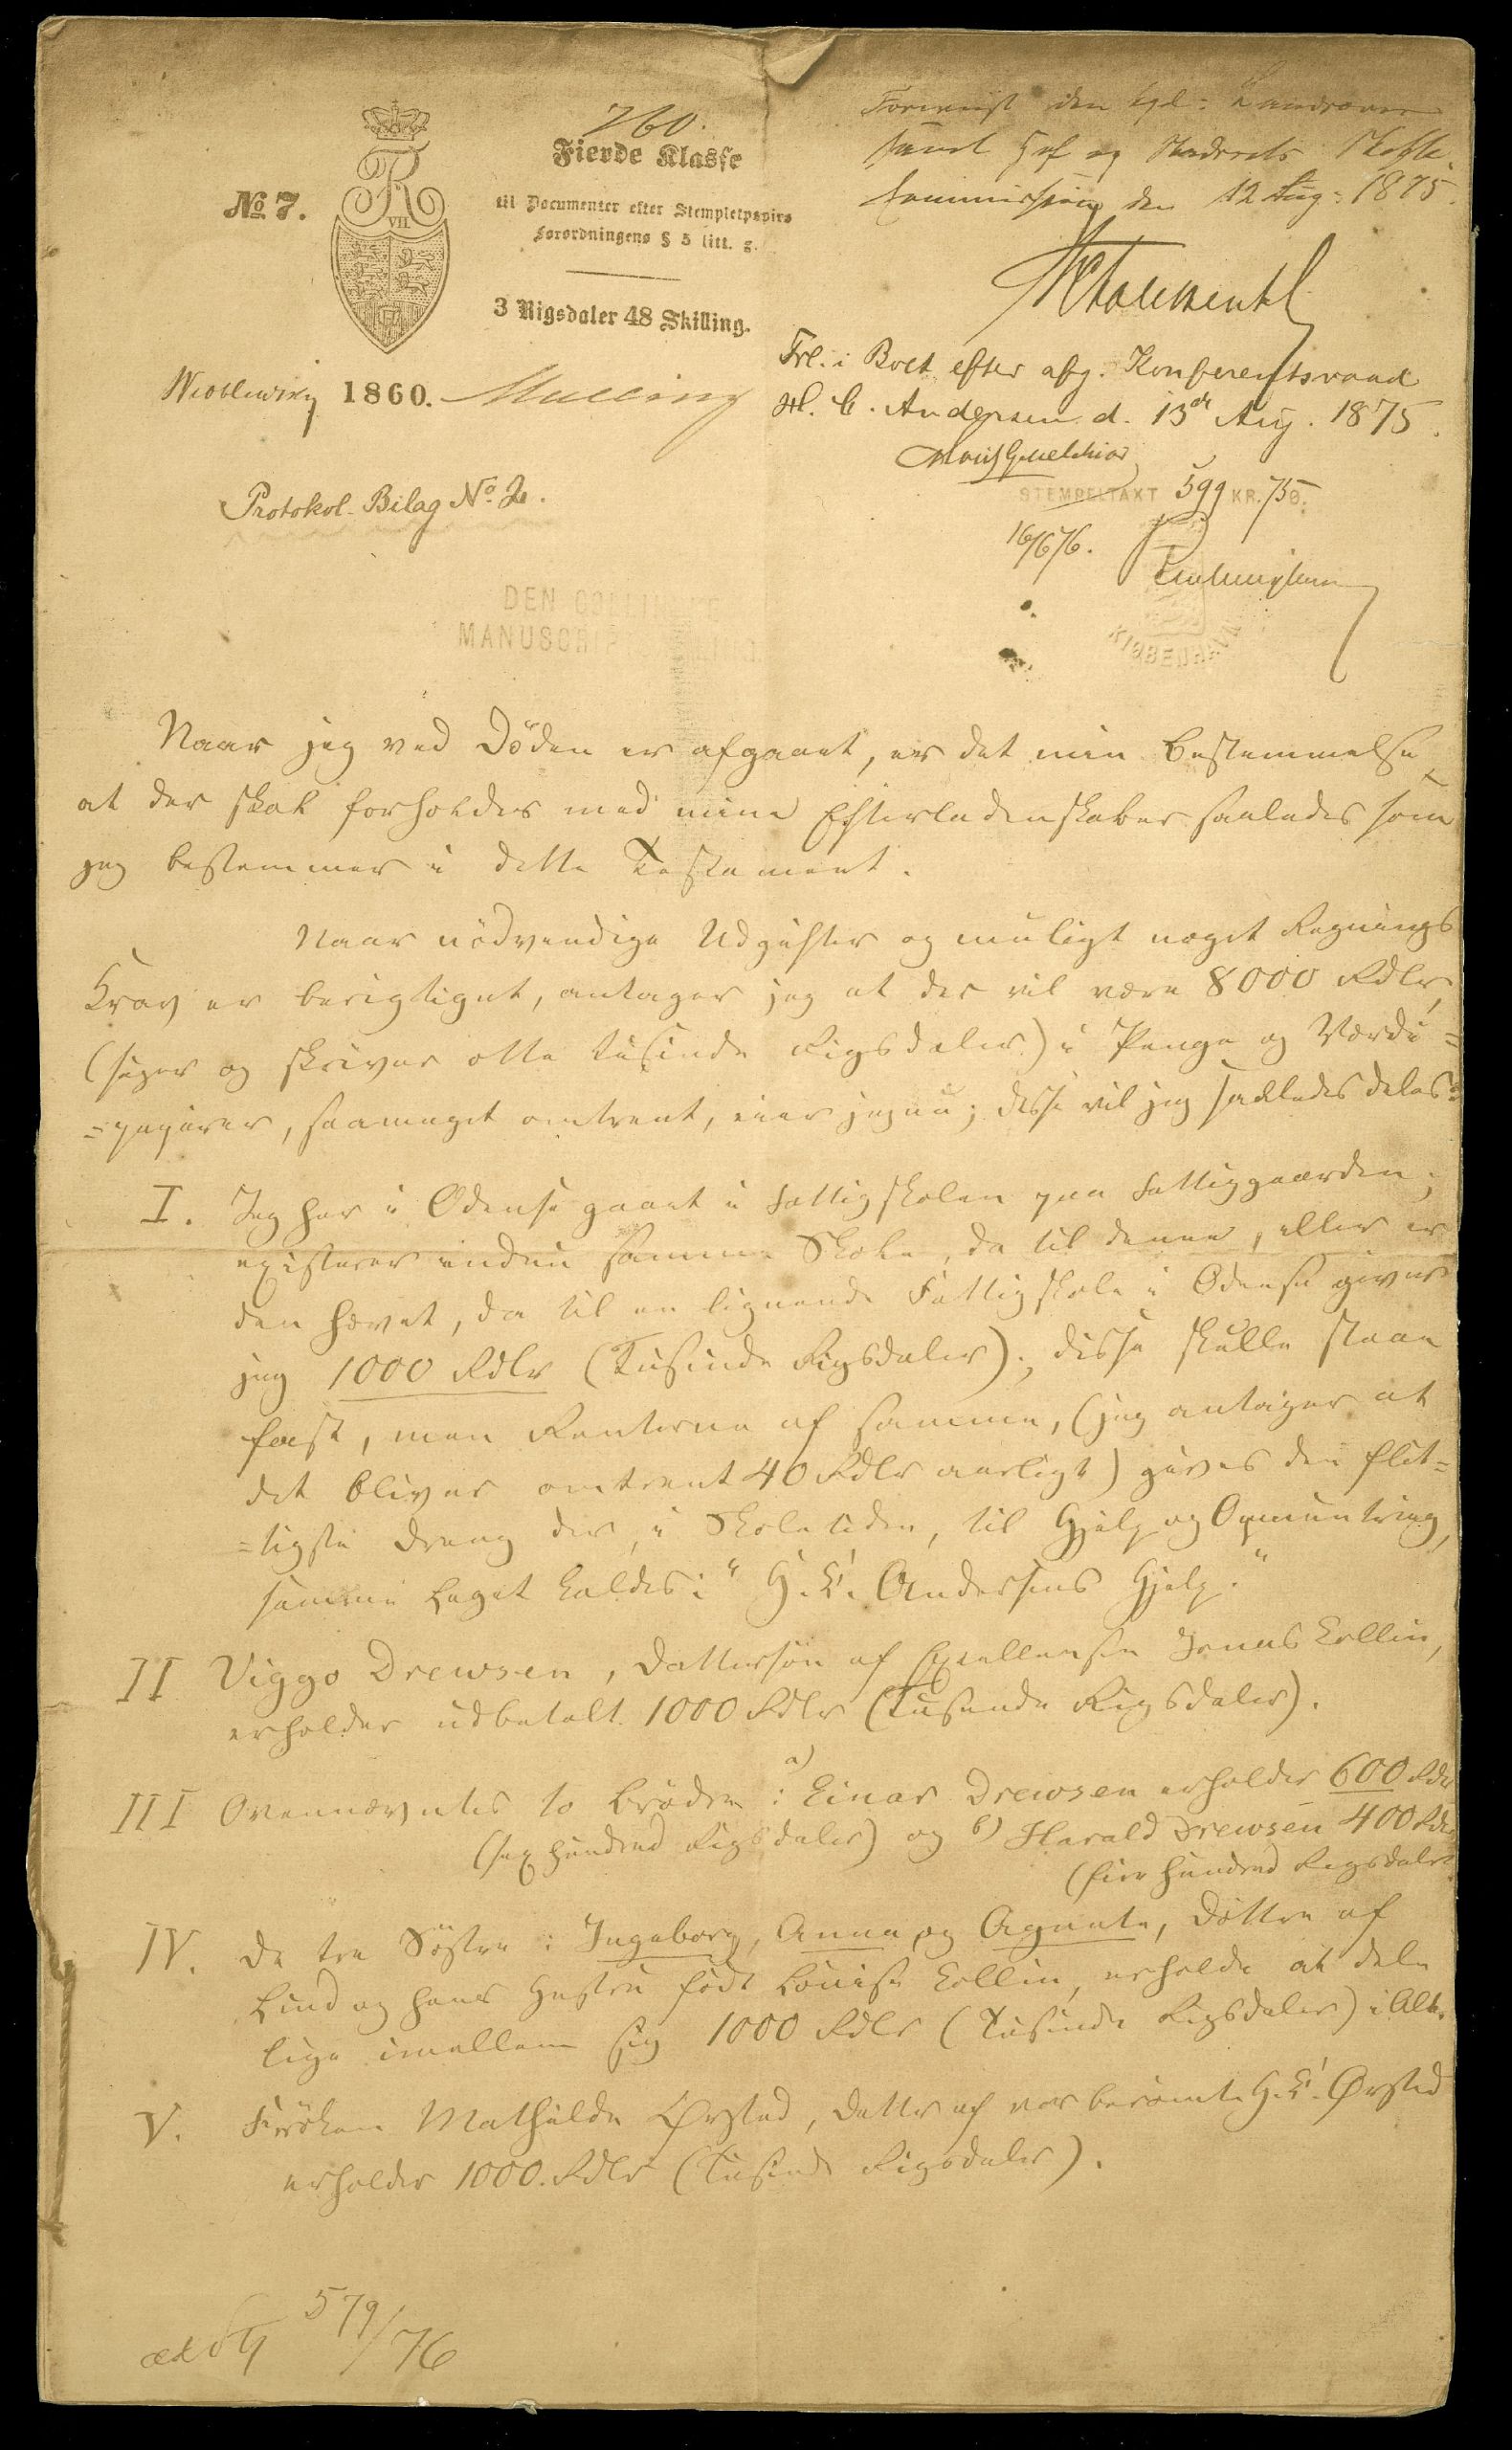 760.
Fierde Klasse
til Documenter efter Stempletpapirs
Forordningens § 5 litt. g.
3 Rigsdaler 48 Skilling.
No 7.
VII
1860.
Protokol-Bilag No 2.
Foreviist den kgl: Landsover
samt Hof og Stadsrets Skifte
Commission den 12 Aug: 1875.
Frl. i Boet efter afg. Konferentsraad
H. C. Andersen d. 13de Aug. 1875.
STEMPELTAXT 599 KR. 75 Ø.
16/6 76.
KIØBENHAVN
DEN COLLINSKE
MANUSCRIPTSAMLING.
Naar jeg ved Döden er afgaaet, er det min Bestemmelse
at der skal forholdes med mine Efterladenskaber saaledes som
jeg bestemmer i dette Testament.
Naar nödvendige Udgifter og muligt noget Regnings
Krav er berigtiget, antager jeg at der vil være 8000 Rdlr,
(siger og skriver otte tusinde Rigsdaler) i Penge og Værdi=
=papirer, saameget omtrent, eier jeg nu; disse vil jeg saaledes deles:
I. Jeg har i Odense gaaet i Fattigskolen paa Fattiggaarden;
existerer endnu samme Skole, da til denne, eller er
den hævet, da til en lignende Fattigskole i Odense giver
jeg 1000 Rdlr (Tusinde Rigsdaler); disse skulle staae
fast, men Renterne af samme, (jeg antager at
det bliver omtrent 40 Rdlr aarligt) gives den flit=
=tigste Dreng der, i Skoletiden, til Hjelp og Opmuntring,
samme Legat kaldes: "H. C. Andersens Hjelp."
II Viggo Drewsen, Dattersön af Excellensen Jonas Collin,
erholder udbetalt 1000 Rdlr (Tusende Rigsdaler).
III Ovennævntes to Brödre: a) Einar Drewsen erholder 600 Rdlr
(sex hundred Rigsdaler) og b) Harald Drewsen 400 Rdlr
(fire hundred Rigsdaler
IV. De tre Söstre: Ingeborg, Anna og Agnete, Döttre af
Lind og hans Hustru födt Louise Collin, erholde at dele
lige imellem sig 1000 Rdlr (Tusinde Rigsdaler) i Alt.
V. Fröken Mathilde Ørsted, Datter af vor berömte H. C. Ørsted
erholder 1000. Rdlr (Tusinde Rigsdaler).
579/76